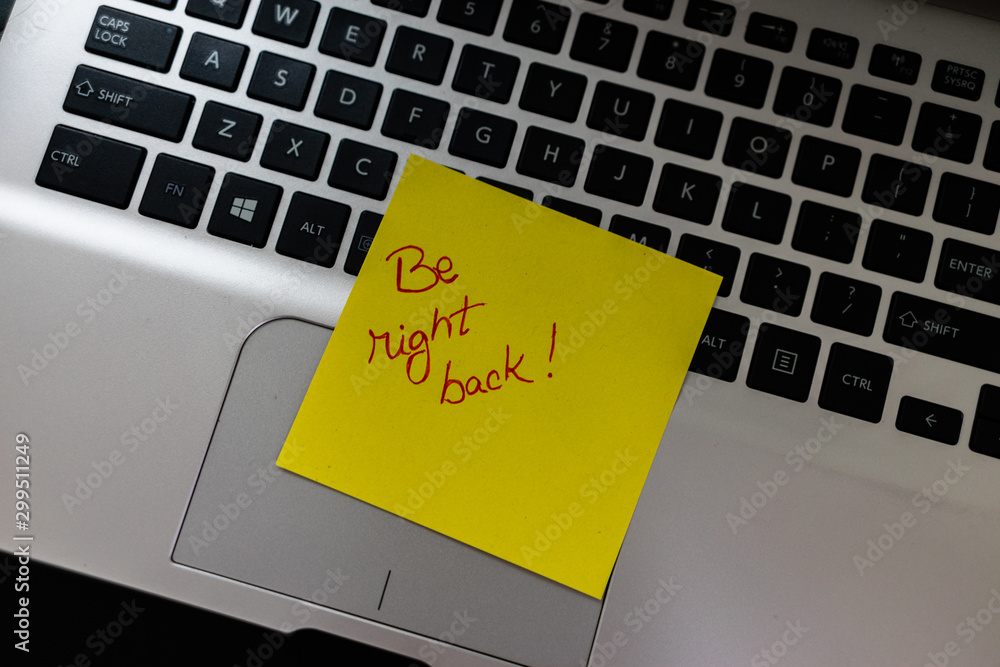 Q W E R T Y U I O P
5 6 & 7 * 8 ( 9 ) 0
PRTSC SYSRQ
CAPS LOCK A S D F G H J K L
ENTER
SHIFT Z X C M < > ? / SHIFT
CTRL FN ALT ALT CTRL
Be
right
back!
Adobe Stock | #299511249
Adobe Stock